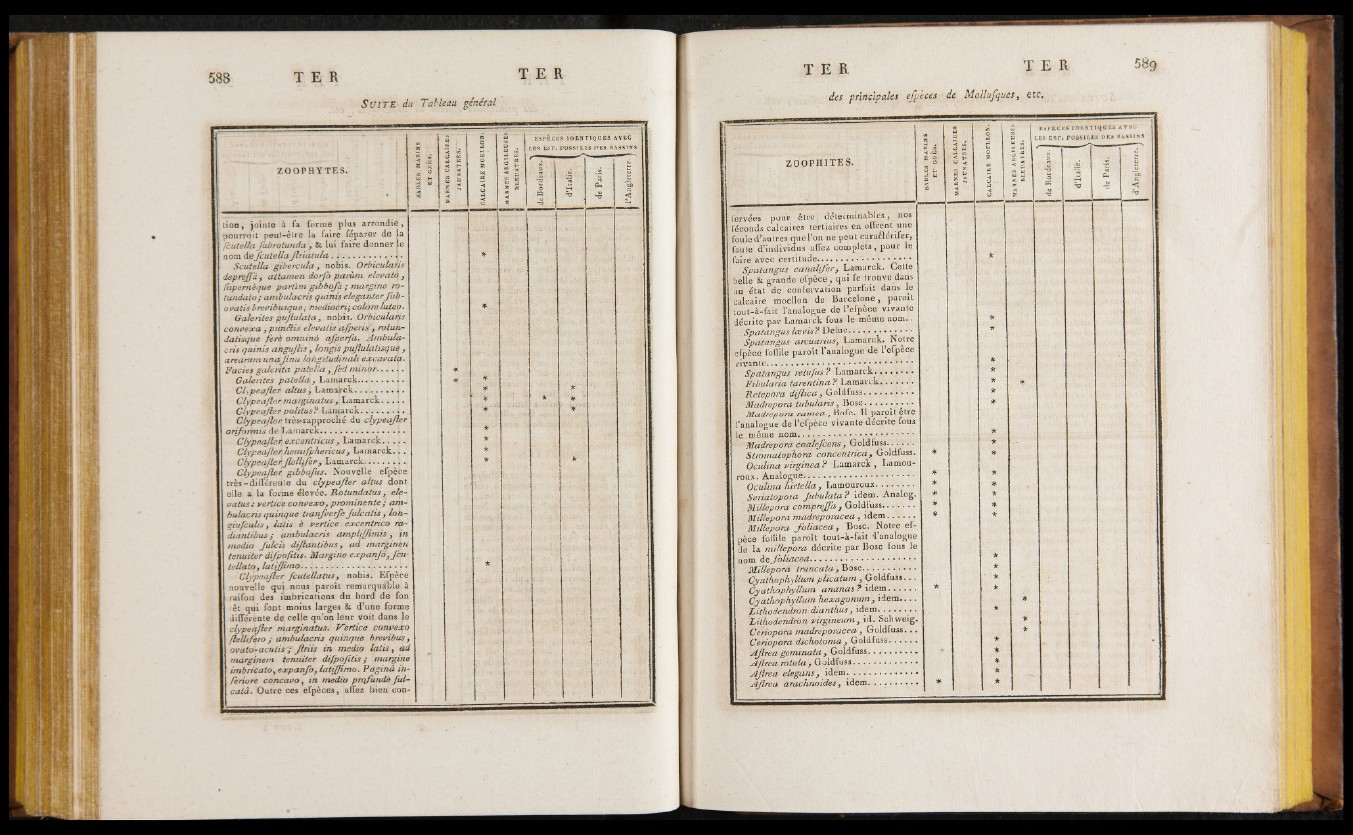 588 TER TER
SUITE du Tableau général
ZOOPHYTES.
SABLES MARINS ET GRÈS.
MARNES CALCAIRES JAUNATRES.
CALCAIRE MOELLON.
MARNES ARGILEUSES BLEUATRES.
ESPÈCES IDENTIQUES AVEC
LES ESP. FOSSILES DES BASSINS
de Bordeaux.
d'Italie.
de Paris.
d'Angleterre.
tion, jointe à fa forme plus arrondie,
pourroit peut-être la faire féparer de la
fcutella fubrotunda, & lui faire donner le
nom de fcutella ftriatula . . . . . . . . . . . . . . *
Scutella gibercula, nobis. Orbicularis
depreffa, attamen dorfo parùm elevato,
fupernèque partim gibbofa ; margine ro-
tundato ; ambulacris quinis eleganter fub-
ovatis brevibusque ; mediocri; colore luteo. *
Galerites puftulata, nobis. Orbicularis
convexa, punctis elevatis afperis, rotun-
datisque ferè omninò afperfa. Ambula-
cris quinis anguftis, longis puftulatisque,
arearum una finu longitudinali excavata.
Facies galerita patella, fed minor. . . . . . *
Galerites patella, Lamarck. . . . . . . . . . * *
Clypeafter altus, Lamarck. . . . . . . . . . * *
Clypeafter marginatus, Lamarck. . . . . * * *
Clypeafter politus? Lamarck. . . . . . . . . * *
Clypeafter très-rapproché du clypeafter
oriformis de Lamarck. . . . . . . . . . . . . . . . *
Clypeafter excentricus, Lamarck. . . . . *
Clypeafter hemifphericus, Lamarck. . . *
Clypeafter ftellifer, Lamarck. . . . . . . . . * *
Clypeafter gibbofus. Nouvelle efpèce
très-différente du clypeafter altus dont
elle a la forme élevée. Rotundatus, ele-
vatus ; vertice convexo, prominente ; am-
bulacris quinque tranfverfe fulcatis, lon-
giufculis, latis è vertice excentrico ra-
diantibus ; ambulacris ampliffimis, in
medio fulcis diftantibus, ad marginen
tenuiter difpofitis. Margine expanfo, fcu-
tellato, latiffimo. . . . . . . . . . . . . . . . . . . . *
Clypeafter fcutellatus, nobis. Efpèce
nouvelle qui nous paroît remarquable à
raifon des imbrications du bord de fon
têt qui font moins larges & d'une forme
différente de celle qu'on leur voit dans le
clypeafter marginatus. Vertice convexo
ftellifero ; ambulacris quinque brevibus,
ovato-acutis ; ftriis in medio latis, ad
marginem tenuiter difpofitis ; margine
imbricato, expanfo, latiffimo. Paginâ in-
feriore concava, in medio profundè ful-
catâ. Outre ces efpèces, affez bien con-
TER TER 589
des principales efpèces de Mollufques, etc.
ZOOPHITES.
SABLES MARINS ET GRÈS.
MARNES CALCAIRES JAUNATRES.
CALCAIRE MOELLON.
MARNES ARGILEUSES BLEUATRES.
ESPÈCES IDENTIQUES AVEC
LES ESP. FOSSILES DES BASSINS
de Bordeaux.
d'Italie.
de Paris.
d'Angleterre.
fervées pour être déterminables, nos
féconds calcaires tertiaires en offrent une
foule d'autres que l'on ne peut caractérifer,
faute d'individus affez complets, pour le
faire avec certitude. . . . . . . . . . . . . . . . . . *
Spatangus canalifer, Lamarck. Cette
belle & grande efpèce, qui fe trouve dans
un état de confervation parfait dans le
calcaire moellon de Barcelone, paroît
tout-à-fait l'analogue de l'efpèce vivante
décrite par Lamarck fous le même nom. . *
Spatangus lævis? Deluc. . . . . . . . . . . . . *
Spatangus arcuarius, Lamarck. Notre
efpèce foffile paroît l'analogue de l'efpèce
vivante. . . . . . . . . . . . . . . . . . . . . . . . . . . *
Spatangus retufus? Lamarck. . . . . . . . *
Fibularia tarentina? Lamarck. . . . . . . * *
Retepora diftica, Goldfuss. . . . . . . . . . *
Madrepora tubularis, Bosc. . . . . . . . . . *
Madrepora ramea, Bosc. Il paroît être
l'analogue de l'efpèce vivante décrite fous
le même nom. . . . . . . . . . . . . . . . . . . . . . *
Madrepora coalefcens, Goldfuss. . . . . . *
Stromatophora concentrica, Goldfuss. * *
Oculina virginea? Lamarck, Lamou-
roux. Analogue. . . . . . . . . . . . . . . . . . . . * *
Oculina hirtella, Lamouroux. . . . . . . . * *
Seriatopora fubulata? idem. Analog. * *
Millepora compreffa, Goldfuss. . . . . . . * *
Millepora madreporacea, idem. . . . . . * *
Millepora foliacea, Bosc. Notre ef-
pèce foffile paroît tout-à-fait l'analogue
de la millepora décrite par Bosc fous le
nom de foliacea. . . . . . . . . . . . . . . . . . . . *
Millepora truncata, Bosc. . . . . . . . . . . *
Cyathophyllum plicatum, Goldfuss. . . *
Cyathophyllum ananas? idem. . . . . . * *
Cyathophyllum hexagonum, idem. . . . *
Lithodendron dianthus, idem. . . . . . . . *
Lithodendron virgineum, id. Schweig. *
Ceriopora madreporacea, Goldfuss. . . *
Ceriopora dichotoma, Goldfuss. . . . . . *
Aftrea geminata, Goldfuss. . . . . . . . . . *
Aftrea rotula, Goldfuss. . . . . . . . . . . . . *
Aftrea elegans, idem. . . . . . . . . . . . . . . *
Aftrea arachnoides, idem. . . . . . . . . . . * *